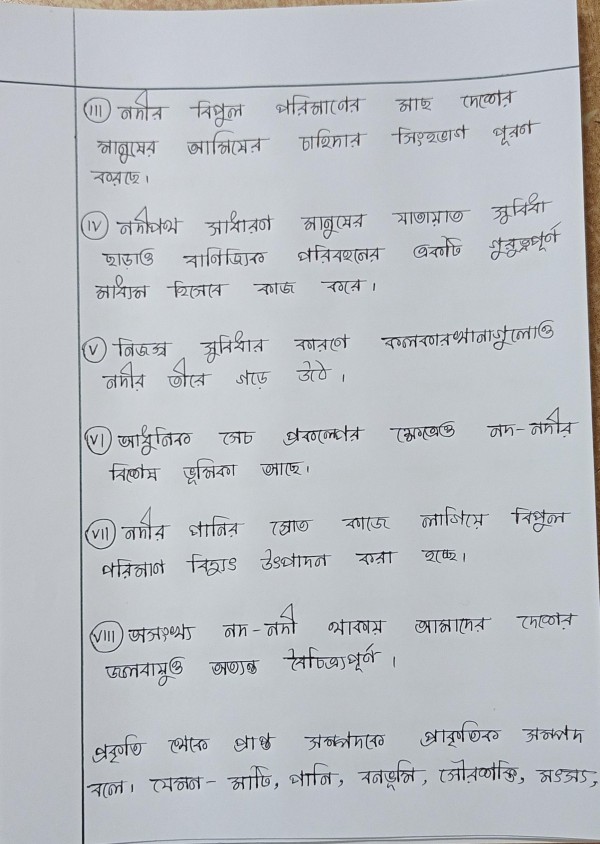 (III) নদীর বিপুল পরিমানের মাছ দেশের
মানুষের আমিষের চাহিদার সিংহভাগ পূরণ
করছে।
(IV) নদীপথ সাধারন মানুষের যাতায়াত সুবিধা
ছাড়াও বানিজ্যিক পরিবহনের একটি গুরুত্বপূর্ন
মাধ্যম হিসেবে কাজ করে।
(V) নিজস্ব সুবিধার কারণে কলকারখানাগুলোও
নদীর তীরে গড়ে উঠে।
(VI) আধুনিক সেচ প্রকল্পের ক্ষেত্রেও নদ-নদীর
বিশেষ ভূমিকা আছে।
(VII) নদীর পানির স্রোত কাজে লাগিয়ে বিপুল
পরিমান বিদ্যুৎ উৎপাদন করা হচ্ছে।
(VIII) অসংখ্য নদ-নদী থাকায় আমাদের দেশের
জলবায়ুও অত্যন্ত বৈচিত্র্যপূর্ন।
প্রকৃতি থেকে প্রাপ্ত সম্পদকে প্রাকৃতিক সম্পদ
বলে। যেমন- মাটি, পানি, বনভূমি, সৌরশক্তি, মৎস্য,